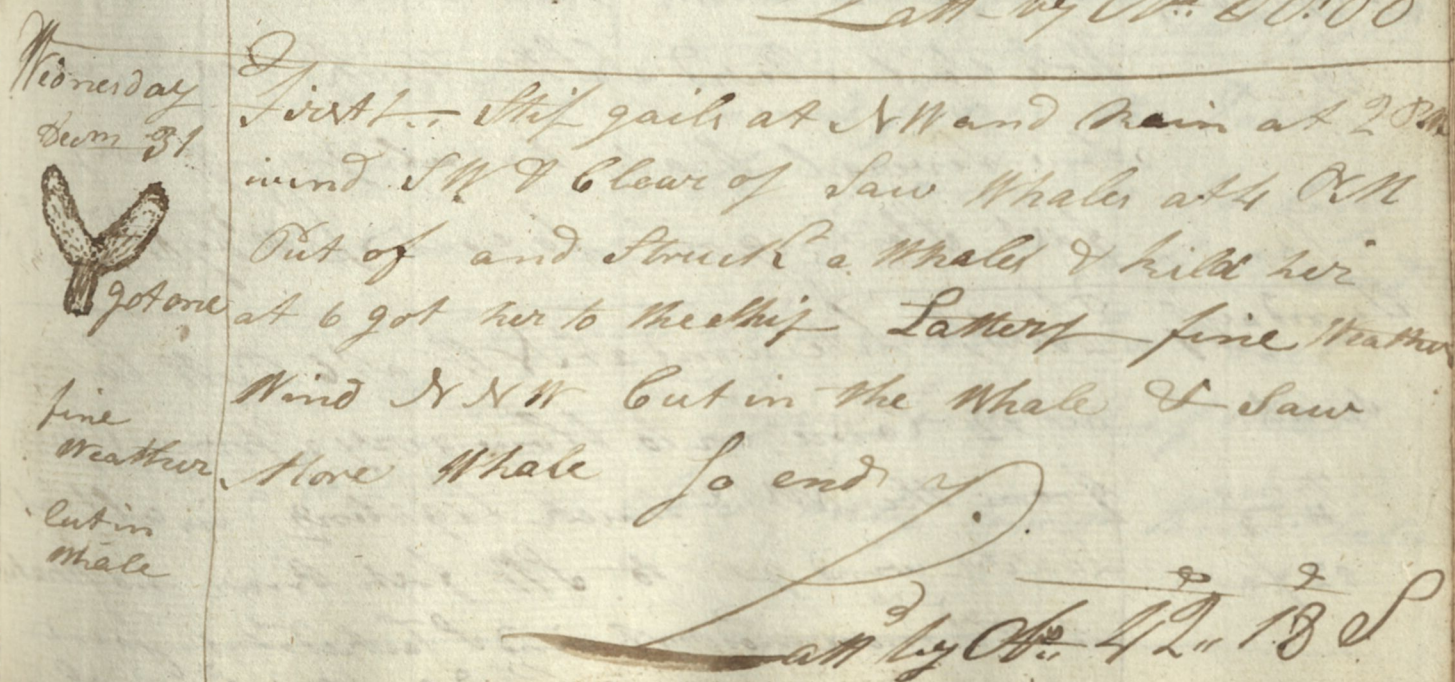 Latt by Obs 40:00
Wednesday
Decm 31
got one
fine
Weather
Cut in
Whale
First Stif gails at NW and Rain at 2 PM
wind SW & Clear of Saw Whales at 4 PM
Put of and Struck a Whale & kild her
at 6 got her to the Ship Latter fine Weather
Wind NNW Cut in the Whale & Saw
More Whale So ends
Latt by Obs 42" 18 S